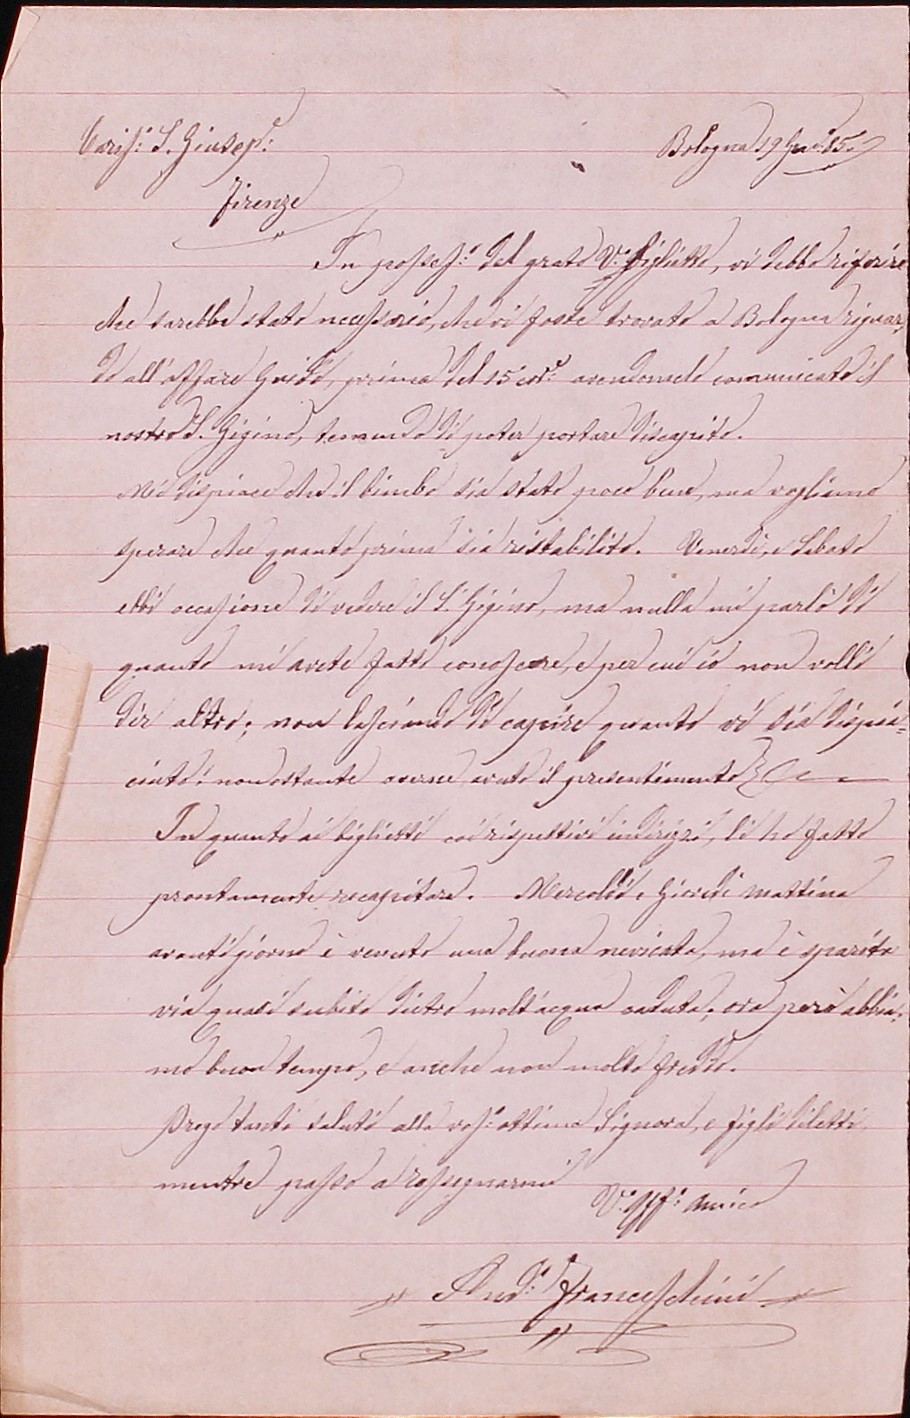 Cariss: S. Giusep:
Bologna 19 Gen: 85.
Firenze
In possess: del grato V: Biglietto, vi debbo riferire
che sarebbe stato necessario, che vi foste trovato a Bologna riguar-
do all'affare Guidi, prima del 15 corr: avendomelo comunicato il
nostro S. Gigino, temendo di poter portare discapito.
Mi dispiace che il bimbo sia stato poco bene, ma vogliamo
sperare che quanto prima sia ristabilito. Venerdì, e Sabato
ebbi occasione di vedere il S. Gigino, ma nulla mi parlò di
quanto mi avete fatto conoscere, e per cui io non volli
dir altro; non lasciando di capire quanto vi sia dispia-
ciuto: nonostante averne avuto il presentimento
In quanto ai biglietti coi rispettivi indirizzi, li ho fatti
prontamente recapitare. Mercoldì, e Giovedì mattina
avanti giorno è venuto una buona nevicata, ma è sparita
via quasi subito dietro molt'acqua caduta; ora però abbia-
mo buon tempo, e anche non molto freddo.
Prego tanti saluti alla vos: ottima Signora, e figli diletti
mentre passo a rassegnarmi
V: Aff: Amico
And: Franceschini